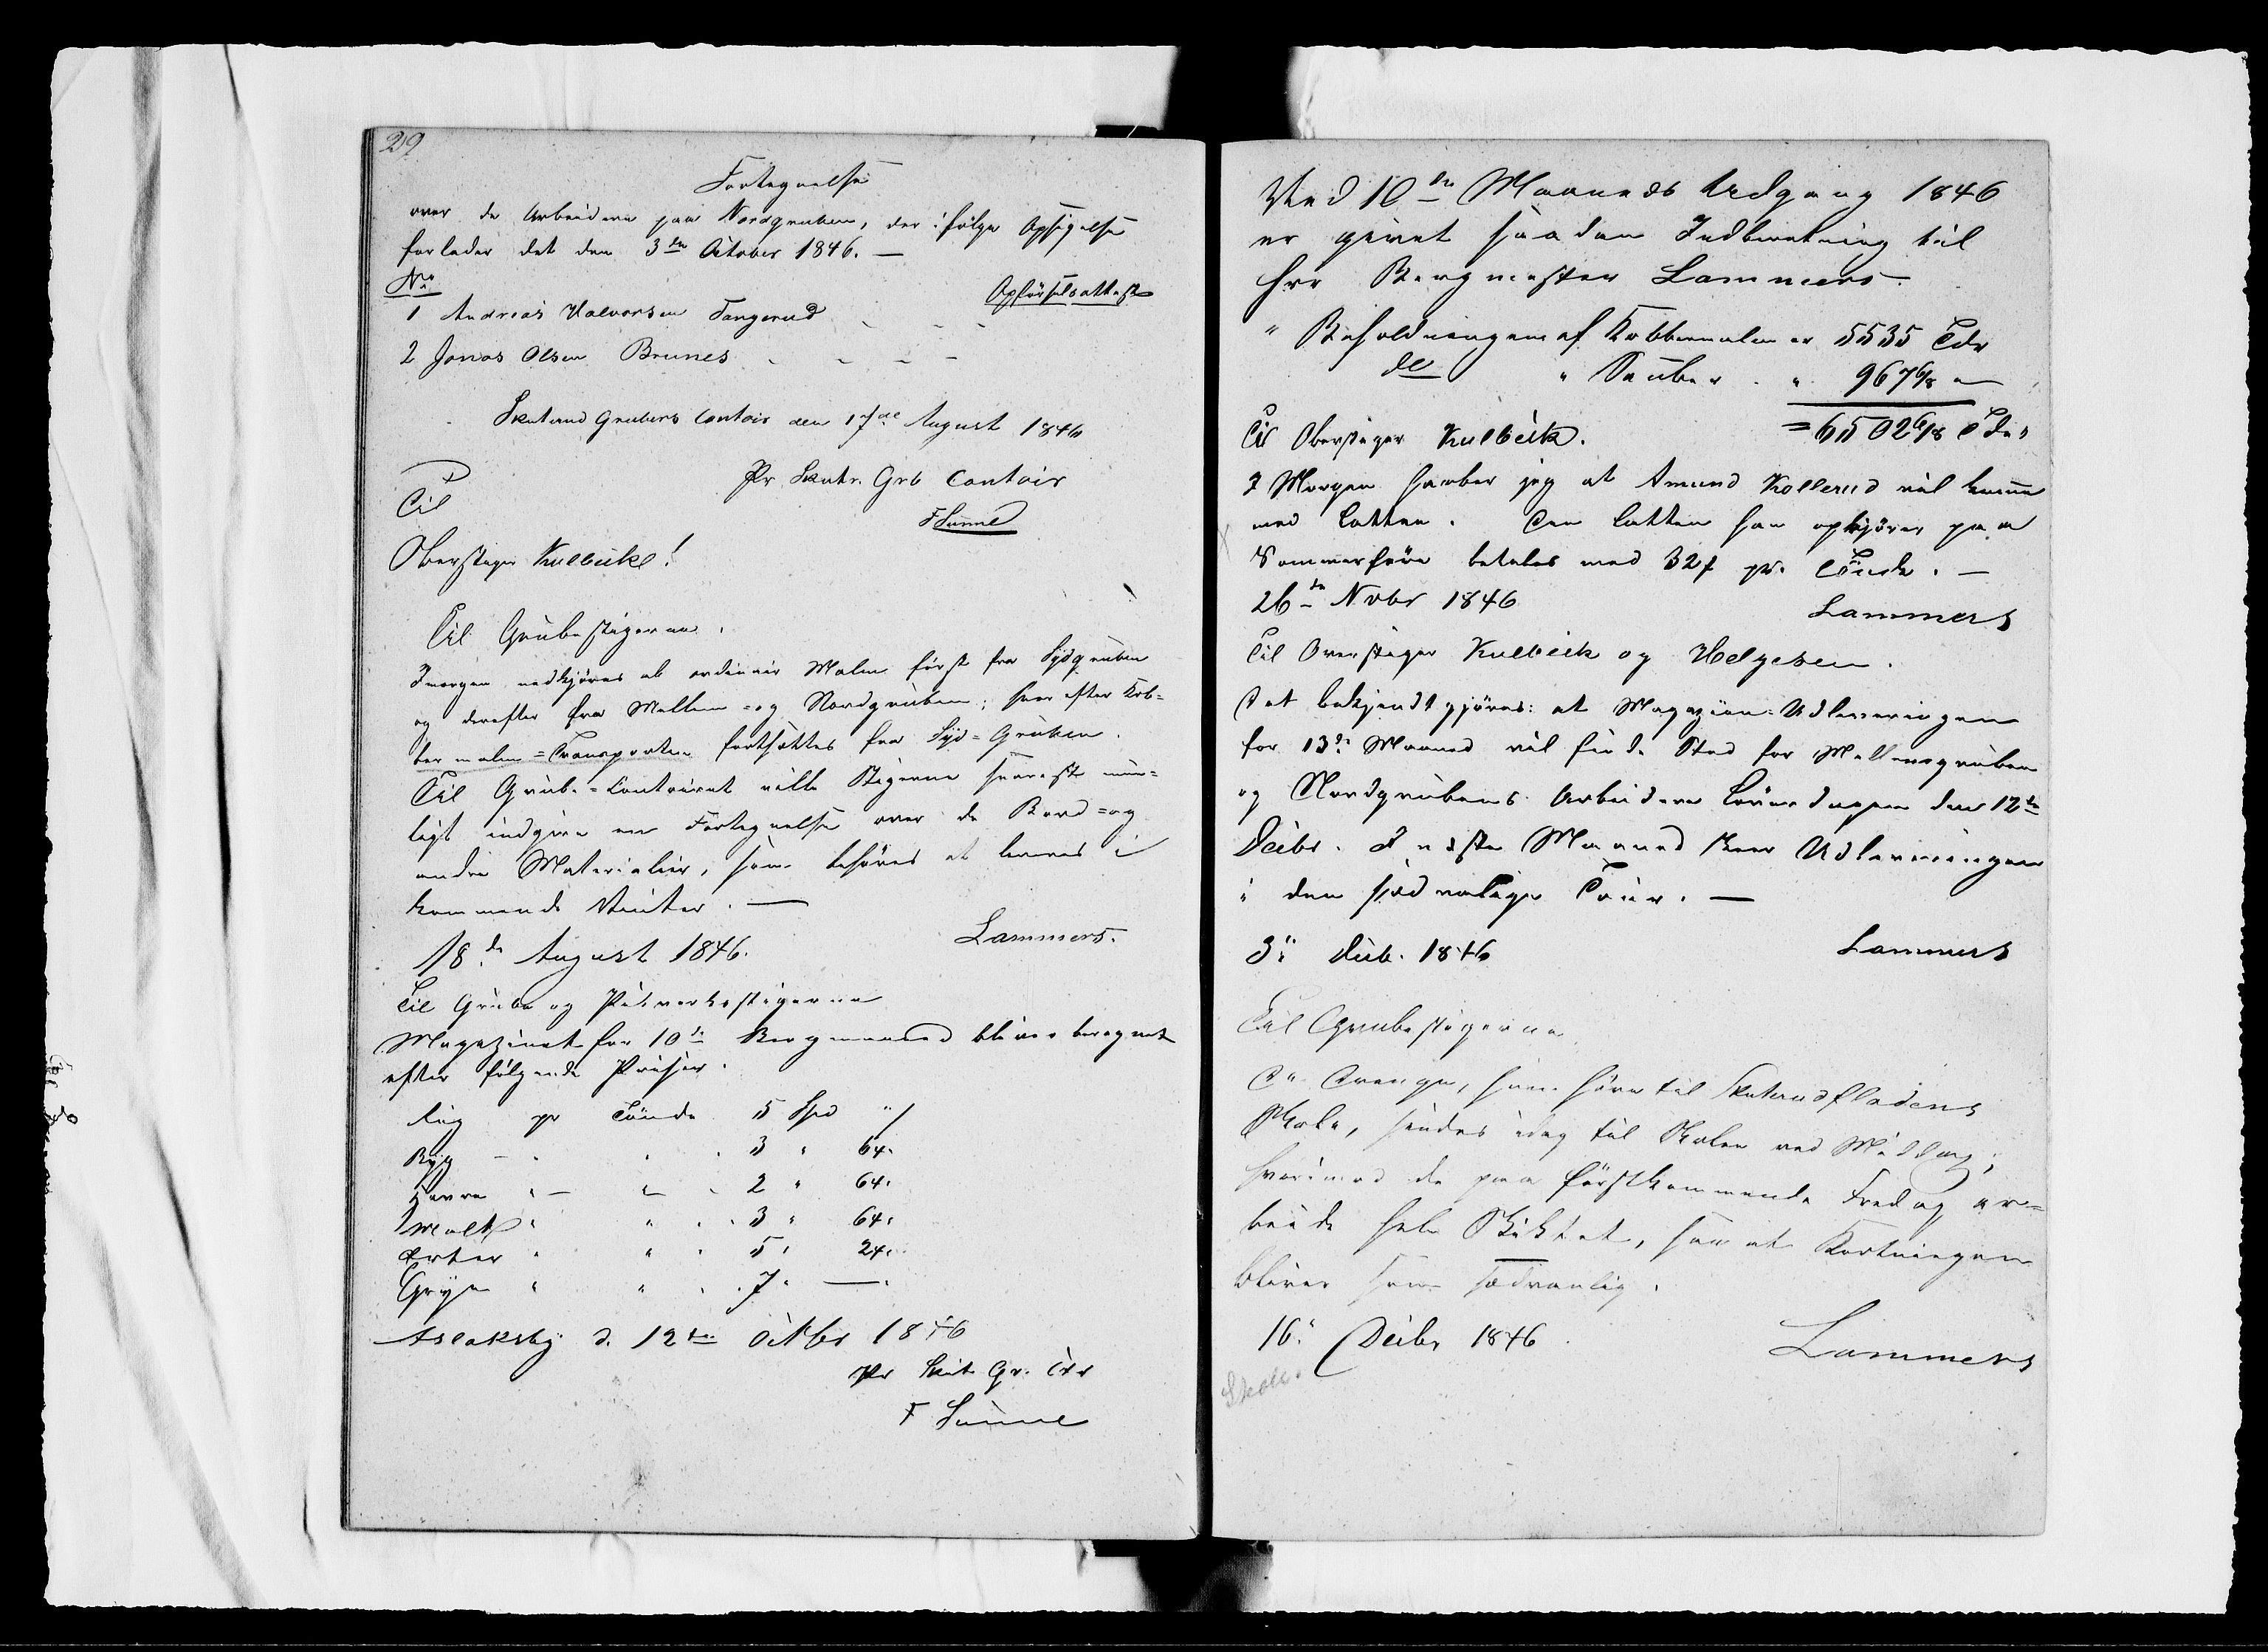 29
Fortegnelse
over de Arbeidere paa Nordgruben, der ifølge Opsigelse
forlader det den 3die October 1846. —
No.
Opførselsattest
1 Andreas Halvorsen Tangerud
2 Jonas Olsen Brunes
Skuterud Grubers Contoir den 17de August 1846
Pr Skutr. Grb Contoir
F Sünne
Til
Oberstiger Kulbeck!
Til Grubestigerne.
Imorgen nedkjøres al ordinair Malm først fra Sydgruben
og derefter fra Mellem- og Nordgruben; hvorefter Kob-
bermalm-Transporten fortsættes fra Syd-Gruben.
Til Grube-Contoiret ville Stigerne snarest mue-
ligt indgive en Fortegnelse over de Bord- og
andre Materialier, som behøves at leveres i
kommende Vinter. —
18de August 1846.
Lammers.
Til Grube og Pukværksstigerne
Magazinet for 10de Bergmaaned bliver beregnet
efter følgende Priser.
Rug pr Tønde 5 Spd "
Byg - " " 3 " 64.
Havre " - " 2 " 64.
Malt " " 3 " 64.
Erter " " 5 " 24.
Gryn " " 7. —.
Aslaksby d. 12te Octbr 1846
Pr Skut Gr. Ctr
F Sünne
Ved 10de Maaneds Udgang 1846
er givet saadan Indberetning til
Hrr Bergmester Lammers.
" Beholdningen af Kobbermalm er 5535 Tdr
do " Skuber " 967 6/8 "
= 6502 6/8 Tdr
Til Oberstiger Kulbeck.
I Morgen haaber jeg at Amund Kollerud vil komme
med Latten. Den Latten som opkjøres paa
Sommerføre betales med 32 s pr. Tønde. —
26de Novbr 1846
Lammers
Til Overstiger Kulbeck og Helgesen.
Det bekjendtgjøres: at Magazin-Udleveringen
for 13de Maaned vil finde Sted for Mellemgruben
og Nordgrubens Arbeidere Løverdagen den 12te
Decbr. I næste Maaned skeer Udleveringen
i den sædvanlige Tour. —
3. Decb. 1846
Lammers
Til Grubestigerne
De Drenge, som høre til Skuterudfladens
Skole, sendes idag til Skolen ved Middag;
hvorimod de paa førstkommende Fredag ar-
beide hele Skiktet, saa at Kortningen
bliver som sædvanlig.
16. Decbr 1846
Lammers
Skole.